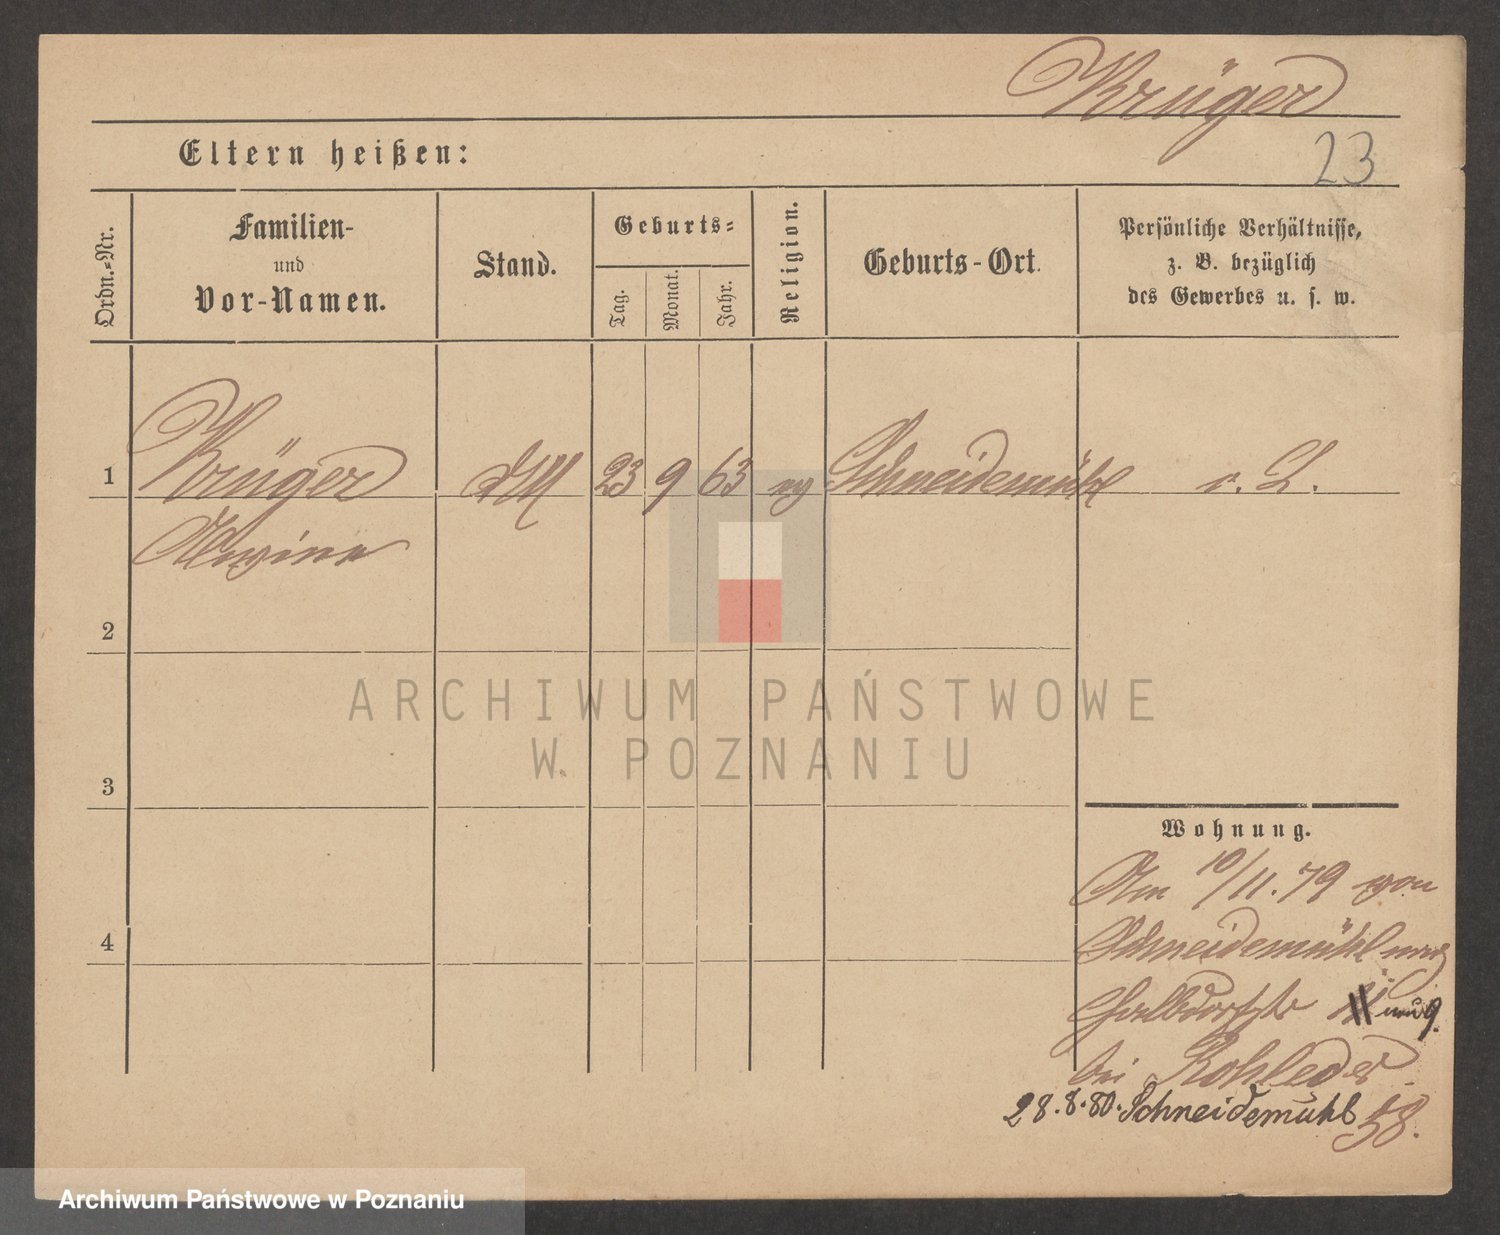 Krüger
Eltern heißen:
23
Ordn.-Nr.
Familien-
und
Vor-Namen.
Stand.
Geburts-
Tag.
Monat.
Jahr.
Religion.
Geburts-Ort.
Persönliche Verhältnisse,
z. B. bezüglich
des Gewerbes u. s. w.
1 Krüger 23 9 63 ev Schneidemühl o. L.
Alwine
2
ARCHIWUM PAŃSTWOWE
W POZNANIU
3
Wohnung.
Am 10/11.79 von
Schneidemühl nach
4
Halbdorfstr
bei Rohleder
28.8.80. Schneidemühl 58.
Archiwum Państwowe w Poznaniu